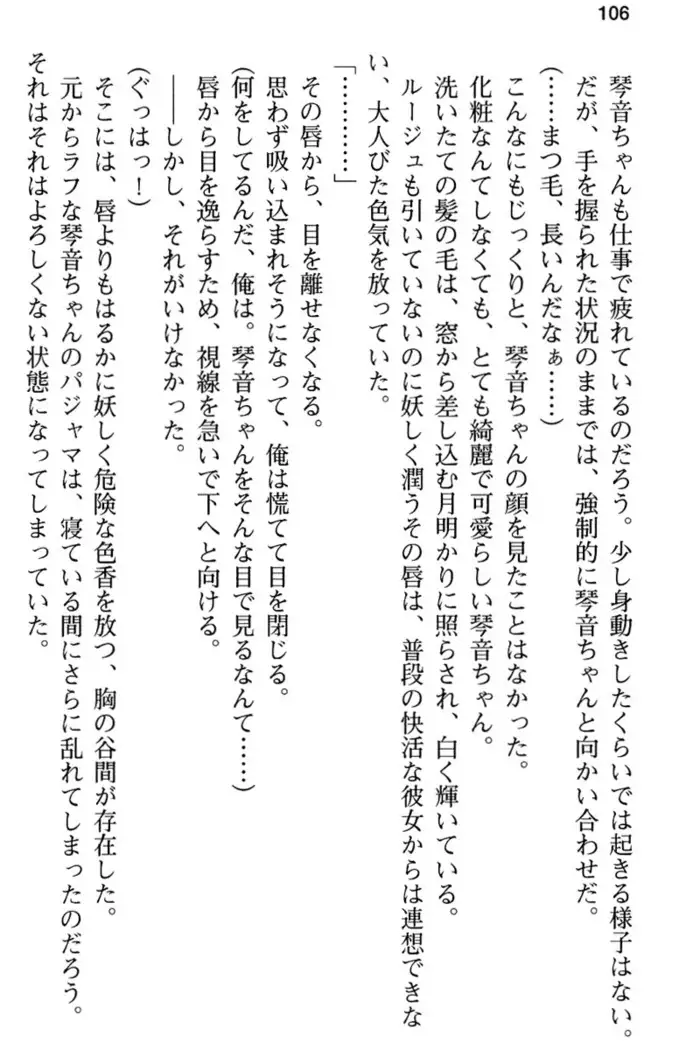 106
琴音ちゃんも仕事で疲れているのだろう。少し身動きしたくらいでは起きる様子はない。
だが、手を握られた状況のままでは、強制的に琴音ちゃんと向かい合わせだ。
(……まつ毛、長いんだなぁ……)
こんなにもじっくりと、琴音ちゃんの顔を見たことはなかった。
化粧なんてしなくても、とても綺麗で可愛らしい琴音ちゃん。
洗いたての髪の毛は、窓から差し込む月明かりに照らされ、白く輝いている。
ルージュも引いていないのに妖しく潤うその唇は、普段の快活な彼女からは連想できな
い、大人びた色気を放っていた。
「…………」
その唇から、目を離せなくなる。
思わず吸い込まれそうになって、俺は慌てて目を閉じる。
(何をしてるんだ、俺は。琴音ちゃんをそんな目で見るなんて……)
唇から目を逸らすため、視線を急いで下へと向ける。
――しかし、それがいけなかった。
(ぐっはっ!)
そこには、唇よりもはるかに妖しく危険な色香を放つ、胸の谷間が存在した。
元からラフな琴音ちゃんのパジャマは、寝ている間にさらに乱れてしまったのだろう。
それはそれはよろしくない状態になってしまっていた。